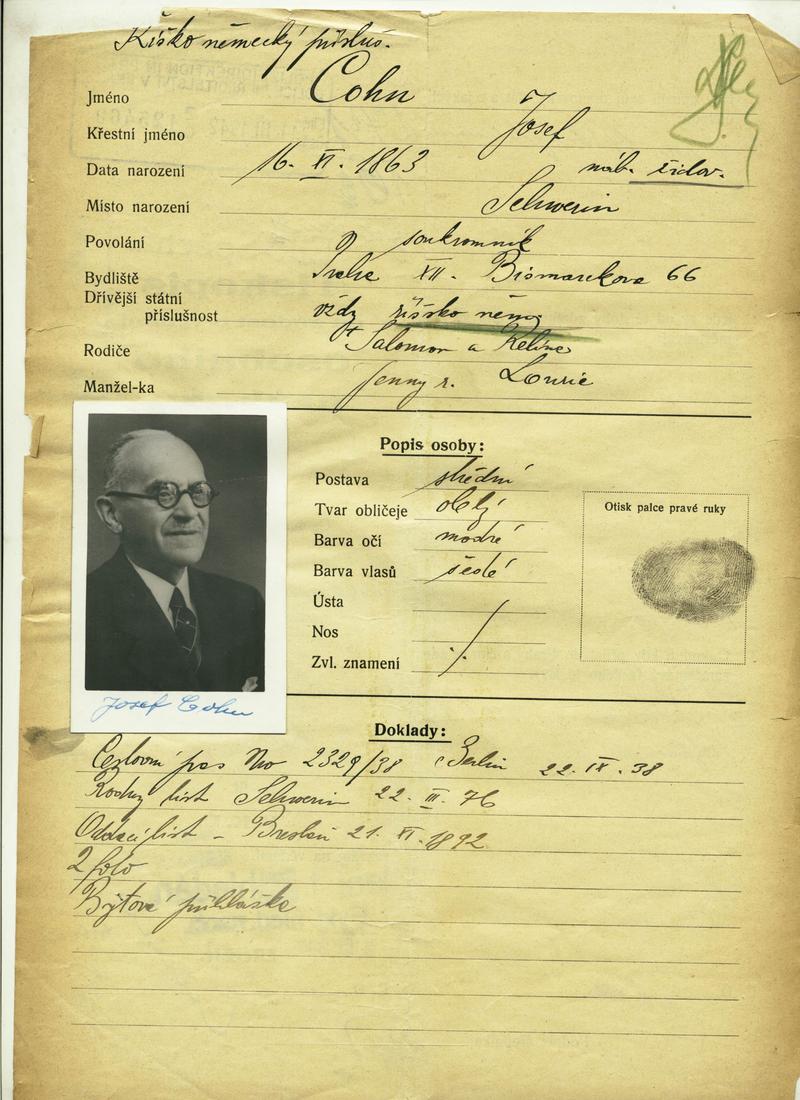 Říšsko německý přísluš.
Jméno Cohn
Křestní jméno Josef
Data narození 16. XI. 1863 náb. židov.
Místo narození Schwerin
Povolání soukromník
Bydliště Praha XII. Bismarckova 66
Dřívější státní
příslušnost vždy říšsko něm.
Rodiče † Salomon a
Manžel-ka Jenny r. Lourie
Popis osoby:
Postava střední
Tvar obličeje oblý
Barva očí modré
Barva vlasů šedé
Ústa
Nos
Zvl. znamení ./.
Otisk palce pravé ruky
Josef Cohn
Doklady:
Cestovní pas No 2329/38 Berlin 22. IX. 38
Rodný list Schwerin 22. III. 76
Oddací list - Breslau 21. XI. 1892
2 foto
Bytová přihláška